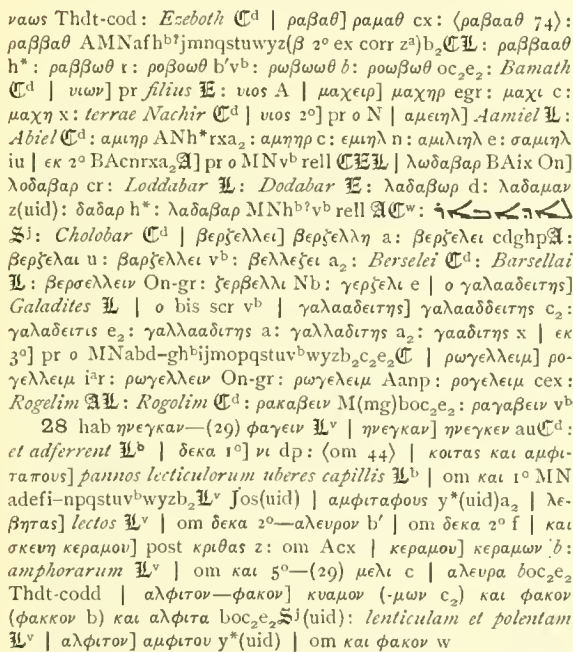 ναως Thdt-cod: Ezeboth ℭᵈ | ραβαθ] ραμαθ cx: ⟨ραβααθ 74⟩:
ραββαθ AMNafhᵇ?jmnqstuwyz(β 2° ex corr zᵃ)b₂ℭ𝕷: ραββααθ
h*: ραββωθ r: ροβοωθ b′vᵇ: ρωβωωθ b: ροωβωθ oc₂e₂: Bamath
ℭᵈ | υιων] pr filius 𝕰: υιος A | μαχειρ] μαχηρ egr: μαχι c:
μαχη x: terrae Nachir ℭᵈ | υιος 2°] pr ο N | αμειηλ] Aamiel 𝕷:
Abiel ℭᵈ: αμιηρ ANh*rxa₂: αμηηρ c: εμιηλ n: αμιλιηλ e: σαμιηλ
iu | εκ 2° BAcnrxa₂𝕬] pr ο MNvᵇ rell ℭ𝕰𝕷 | λωδαβαρ BAix On]
λοδαβαρ cr: Loddabar 𝕷: Dodabar 𝕰: λαδαβωρ d: λαδαμαν
z(uid): δαδαρ h*: λαδαβαρ MNhᵇ?vᵇ rell 𝕬ℭʷ:
𝕾ʲ: Cholobar ℭᵈ | βερζελλει] βερζελλη a: βερζελει cdghp𝕬:
βερζελαι u: βαρζελλει vᵇ: βελλεζει a₂: Berselei ℭᵈ: Barsellai
𝕷: βερσελλειν On-gr: ζερβελλι Nb: γερζελι e | ο γαλααδειτης]
Galadites 𝕷 | ο bis scr vᵇ | γαλααδειτης] γαλααδδειτης c₂:
γαλαδειτις e₂: γαλλααδιτης a: γαλλαδιτης a₂: γααδιτης x | εκ
3°] pr ο MNabd-ghᵇijmopqstuvᵇwyzb₂c₂e₂ℭ | ρωγελλειμ] ρο-
γελλειμ iᵃr: ρωγελλειν On-gr: ρωγελειμ Aanp: ρογελειμ cex:
Rogelim 𝕬𝕷: Rogolim ℭᵈ: ρακαβειν M(mg)boc₂e₂: ραγαβειν vᵇ
28 hab ηνεγκαν—(29) φαγειν 𝕷ᵛ | ηνεγκαν] ηνεγκεν auℭᵈ:
et adferrent 𝕷ᵇ | δεκα 1°] νι dp: ⟨om 44⟩ | κοιτας και αμφι-
ταπους] pannos lecticulorum uberes capillis 𝕷ᵇ | om και 1° MN
adefi-npqstuvᵇwyzb₂𝕷ᵛ Jos(uid) | αμφιταφους y*(uid)a₂ | λε-
βητας] lectos 𝕷ᵛ | om δεκα 2°—αλευρον b′ | om δεκα 2° f | και
σκευη κεραμου] post κριθας z: om Acx | κεραμου] κεραμων b:
amphorarum 𝕷ᵛ | om και 5°—(29) μελι c | αλευρα boc₂e₂
Thdt-codd | αλφιτον—φακον] κυαμον (-μων c₂) και φακον
(φακκον b) και αλφιτα boc₂e₂𝕾ʲ(uid): lenticulam et polentam
𝕷ᵛ | αλφιτον] αμφιτου y*(uid) | om και φακον w